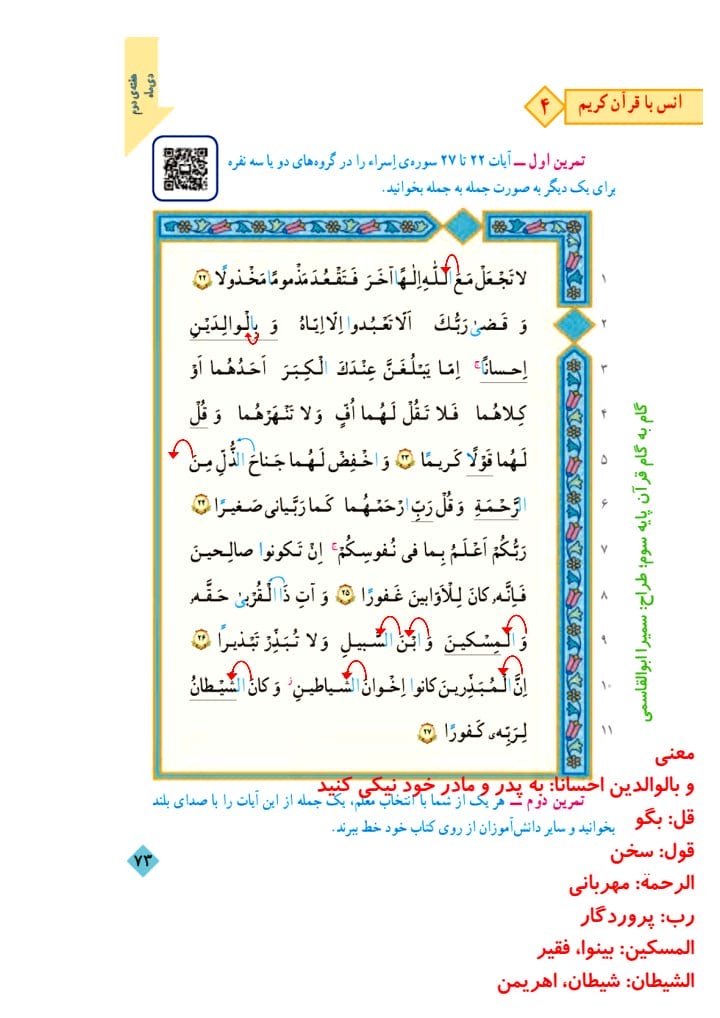 هفته‌ی دوم
دی‌ماه
انس با قرآن کریم
۴
تمرین اول ــ آیات ۲۲ تا ۲۷ سوره‌ی اِسراء را در گروه‌های دو یا سه نفره
برای یک دیگر به صورت جمله به جمله بخوانید.
۱ لا تَجْعَلْ مَعَ اللّٰهِ اِلٰهًا آخَرَ فَتَقْعُدَ مَذْمومًا مَخْذولًا ۲۲
۲ وَ قَضىٰ رَبُّكَ اَلّا تَعْبُدوا اِلّا اِيّاهُ وَ بِالْوالِدَيْنِ
۳ اِحسانًا ۚ اِمّا يَبْلُغَنَّ عِنْدَكَ الْكِبَرَ اَحَدُهُما اَوْ
۴ كِلاهُما فَلا تَقُلْ لَهُما اُفٍّ وَ لا تَنْهَرْهُما وَ قُلْ
۵ لَهُما قَوْلًا كَريمًا ۲۳ وَ اخْفِضْ لَهُما جَناحَ الذُّلِّ مِنَ
۶ الرَّحْمَةِ وَ قُلْ رَبِّ ارْحَمْهُما كَما رَبَّيانى صَغيرًا ۲۴
۷ رَبُّكُمْ اَعْلَمُ بِما فى نُفوسِكُمْ ۚ اِنْ تَكونوا صالِحينَ
۸ فَاِنَّهٗ كانَ لِلْاَوّابينَ غَفورًا ۲۵ وَ آتِ ذَا الْقُرْبىٰ حَقَّهٗ
۹ وَ الْمِسْكينَ وَ ابْنَ السَّبيلِ وَ لا تُبَذِّرْ تَبْذيرًا ۲۶
۱۰ اِنَّ الْمُبَذِّرينَ كانوا اِخْوانَ الشَّياطينِ ۖ وَ كانَ الشَّيْطانُ
۱۱ لِرَبِّهٖ كَفورًا ۲۷
گام به گام قرآن پایه سوم؛ طراح: سمیرا ابوالقاسمی
معنی
و بالوالدین احسانا: به پدر و مادر خود نیکی کنید
تمرین دوم ــ هر یک از شما با انتخاب معلم، یک جمله از این آیات را با صدای بلند
بخوانید و سایر دانش‌آموزان از روی کتاب خود خط ببرند.
قل: بگو
قول: سخن
الرحمة: مهربانی
رب: پروردگار
المسکین: بینوا، فقیر
الشیطان: شیطان، اهریمن
۷۳